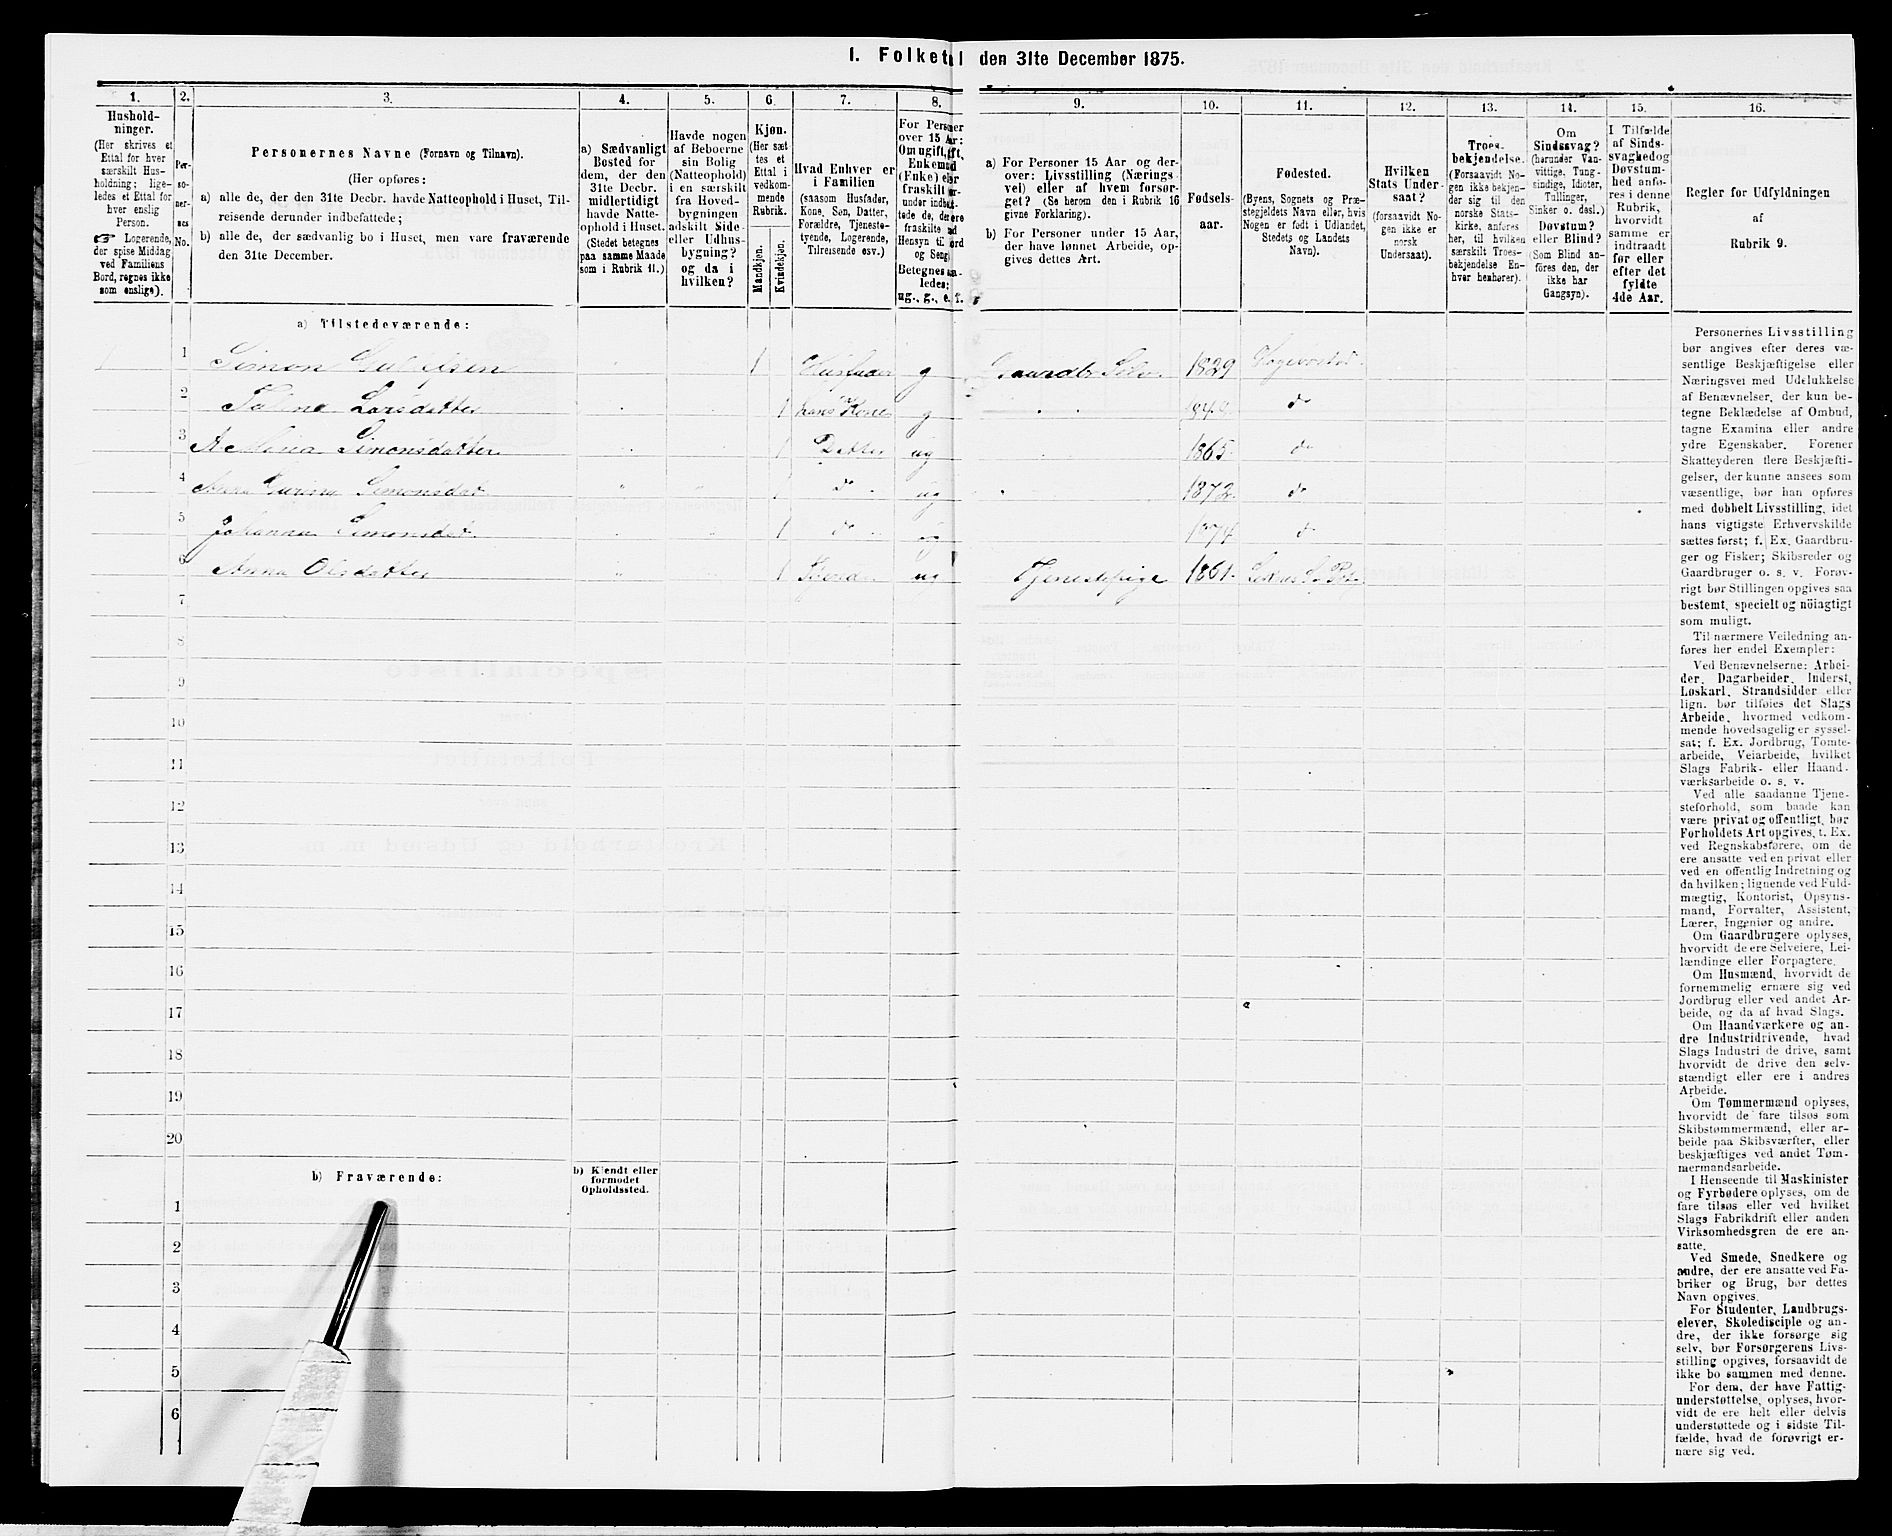 I. Folketal den 31te December 1875.
1.
Hushold-
ninger.
(Her skrives et
Ettal for hver
særskilt Hus-
holdning; lige-
ledes et Ettal for
hver enslig
Person.
☞ Logerende,
der spise Middag
ved Familiens
Bord, regnes ikke
som enslige).
2.
Per-
so-
ner-
nes
No.
3.
Personernes Navne (Fornavn og Tilnavn).
(Her opføres:
a) alle de, der den 31te Decbr. havde Natteophold i Huset, Til-
reisende derunder indbefattede;
b) alle de, der sædvanlig bo i Huset, men vare fraværende
den 31te December.
4.
a) Sædvanligt
Bosted for
dem, der den
31te Decbr.
midlertidigt
havde Natte-
ophold i Huset.
(Stedet betegnes
paa samme Maade
som i Rubrik 11.)
5.
Havde nogen
af Beboerne
sin Bolig
(Natteophold)
i en særskilt
fra Hoved-
bygningen
adskilt Side-
eller Udhus-
bygning?
og da i
hvilken?
6.
Kjøn.
(Her sæt
tes et
Ettal i
vedkom-
mende
Rubrik.
Mandkjøn.
Kvindekjøn.
7.
Hvad Enhver er
i Familien
(saasom Husfader,
Kone, Søn, Datter,
Forældre, Tjeneste-
tyende, Logerende,
Tilreisende osv.)
8.
For Personer
over 15 Aar:
Om ugift, gift,
Enkemand
(Enke) eller
fraskilt
Hensyn til
og Seng
Betegnes
ledes:
ug., g., e., f.
9.
a) For Personer 15 Aar og der-
over: Livsstilling (Nærings
vei) eller af hvem forsør-
get? (Se herom den i Rubrik 16
givne Forklaring).
b) For Personer under 15 Aar,
der have lønnet Arbeide, op-
gives dettes Art.
10.
Fødsels-
aar.
11.
Fødested.
(Byens, Sognets og Præ-
stegjeldets Navn eller, hvis
Nogen er født i Udlandet,
Stedets og Landets
Navn).
12.
Hvilken
Stats Under-
saat?
(forsaavidt No-
gen ikke er
norsk
Undersaat).
13.
Troes-
bekjendelse.
(Forsaavidt No-
gen ikke bekjen-
der sig til den
norske Stats-
kirke, anføres
her, til hvilken
særskilt Troes-
bekjendelse En-
hver henhører).
14.
Om
Sindssvag?
(herunder Van-
vittige, Tung-
sindige, Idioter,
Tullinger,
Sinker o. desl.)
Døvstum?
eller Blind?
(Som Blind an-
føres den, der
ikke har
Gangsyn).
15.
I Tilfælde
af Sinds-
svaghed og
Døvstum-
hed anfø-
res i denne
Rubrik,
hvorvidt
samme er
indtraadt
før eller
efter det
fyldte
4de Aar.
16.
Regler for Udfyldningen
af
Rubrik 9.
a) Tilstedeværende:
1 1 Simon 1 Husfader g Gaardbr. Selv. 1829
2 Larsdatter 1 hans Kone g d
3 Simonsdatter 1 Datter ug 1865. d
4 Anna Simonsdat 1 d ug 1872. d
5 Johanna Simonsdat. 1 d ug d
6 Anna Olsdatter 1 ug Tjenestepige 1861.
7
8
9
10
11
12
13
14
15
16
17
18
19
20
b) Fraværende:
b) Kjendt eller
formodet
Opholdssted.
1
2
3
4
5
6
Personernes Livsstilling
bør angives efter deres væ-
sentlige Beskjæftigelse eller
Næringsvei med Udelukkelse
af Benævnelser, der kun be-
tegne Beklædelse af Ombud,
tagne Examina eller andre
ydre Egenskaber. Forener
Skatteyderen flere Beskjæfti-
gelser, der kunne ansees som
væsentlige, bør han opføres
med dobbelt Livsstilling, idet
hans vigtigste Erhvervskilde
sættes først; f. Ex. Gaardbru-
ger og Fisker; Skibsreder og
Gaardbruger o. s. v. Forøv-
rigt bør Stillingen opgives saa
bestemt, specielt og nöiagtigt
som muligt.
Til nærmere Veiledning an-
føres her endel Exempler:
Ved Benævnelserne: Arbei-
der, Dagarbeider, Inderst,
Løskarl, Strandsidder eller
lign. bør tilføies det Slags
Arbeide, hvormed vedkom-
mende hovedsagelig er syssel-
sat; f. Ex. Jordbrug, Tomte-
arbeide, Veiarbeide, hvilket
Slags Fabrik- eller Haand-
værksarbeide o. s. v.
Ved alle saadanne Tjene-
steforhold, som baade kan
være privat og offentligt, bør
Forholdets Art opgives, t. Ex.
ved Regnskabsførere, om de
ere ansatte ved en privat eller
ved en offentlig Indretning og
da hvilken; lignende ved Fuld-
mægtig, Kontorist, Opsyns-
mand, Forvalter, Assistent,
Lærer, Ingeniør og andre.
Om Gaardbrugere oplyses,
hvorvidt de ere Selveiere, Lei-
lændinge eller Forpagtere.
Om Husmænd, hvorvidt de
fornemmelig ernære sig ved
Jordbrug eller ved andet Ar-
beide, og da af hvad Slags.
Om Haandværkere og an-
dre Industridrivende, hvad
Slags Industri de drive, samt
hvorvidt de drive den selv-
stændigt eller ere i andres
Arbeide.
Om Tømmermænd oplyses,
hvorvidt de fare tilsøs som
Skibstømmermænd, eller ar-
beide paa Skibsværfter, eller
beskjæftiges ved andet Tøm-
mermandsarbeide.
I Henseende til Maskinister
og Fyrbødere oplyses, om de
fare tilsøs eller ved hvilket
Slags Fabrikdrift eller anden
Virksomhedsgren de ere an-
satte.
Ved Smede, Snedkere og
andre, der ere ansatte ved Fa-
briker og Brug, bør dettes
Navn opgives.
For Studenter, Landbrugs-
elever, Skoledisciple og an-
dre, der ikke forsørge sig
selv, bør Forsørgerens Livs-
stilling opgives, forsaavidt de
ikke bo sammen med denne.
For dem, der have Fattig-
understøttelse, oplyses, hvor-
vidt de ere helt eller delvis
understøttede og i sidste Til-
fælde, hvad de forøvrigt er-
nære sig ved.